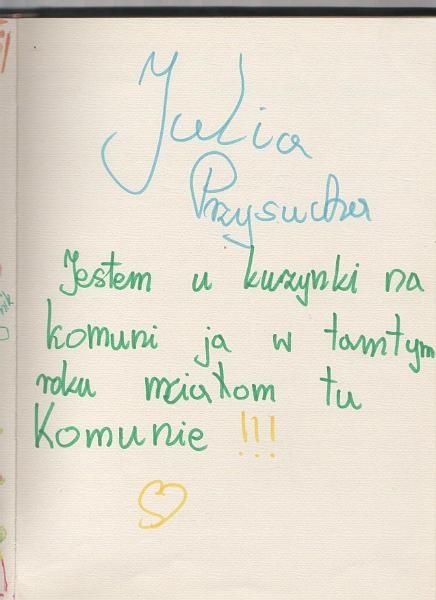 Julia
Przysucha
Jestem u kuzynki na
komuni ja w tamtym
roku miałam tu
Komunie !!!